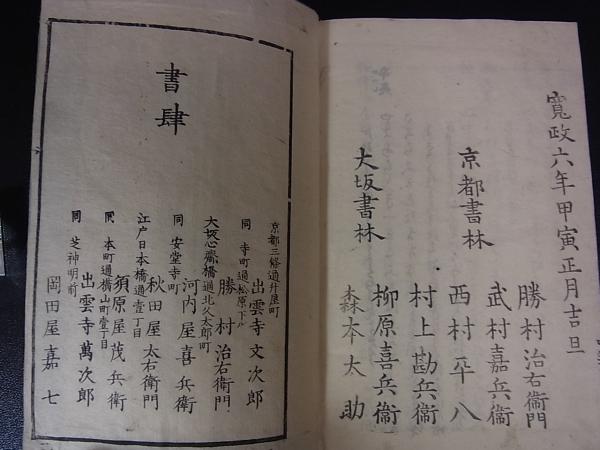 寛政六年甲寅正月吉旦
京都書林
勝村治右衞門
武村嘉兵衞
西村平八
村上勘兵衞
大坂書林
柳原喜兵衞
森本太助
書肆
京都三條通升屋町
出雲寺文次郎
同 寺町通松原下ル
勝村治右衛門
大坂心齋橋通北久太郎町
河内屋喜兵衛
同 安堂寺町
秋田屋太右衛門
江戸日本橋通壹丁目
須原屋茂兵衛
同 本町通横山町壹丁目
出雲寺萬次郎
同 芝神明前
岡田屋嘉七